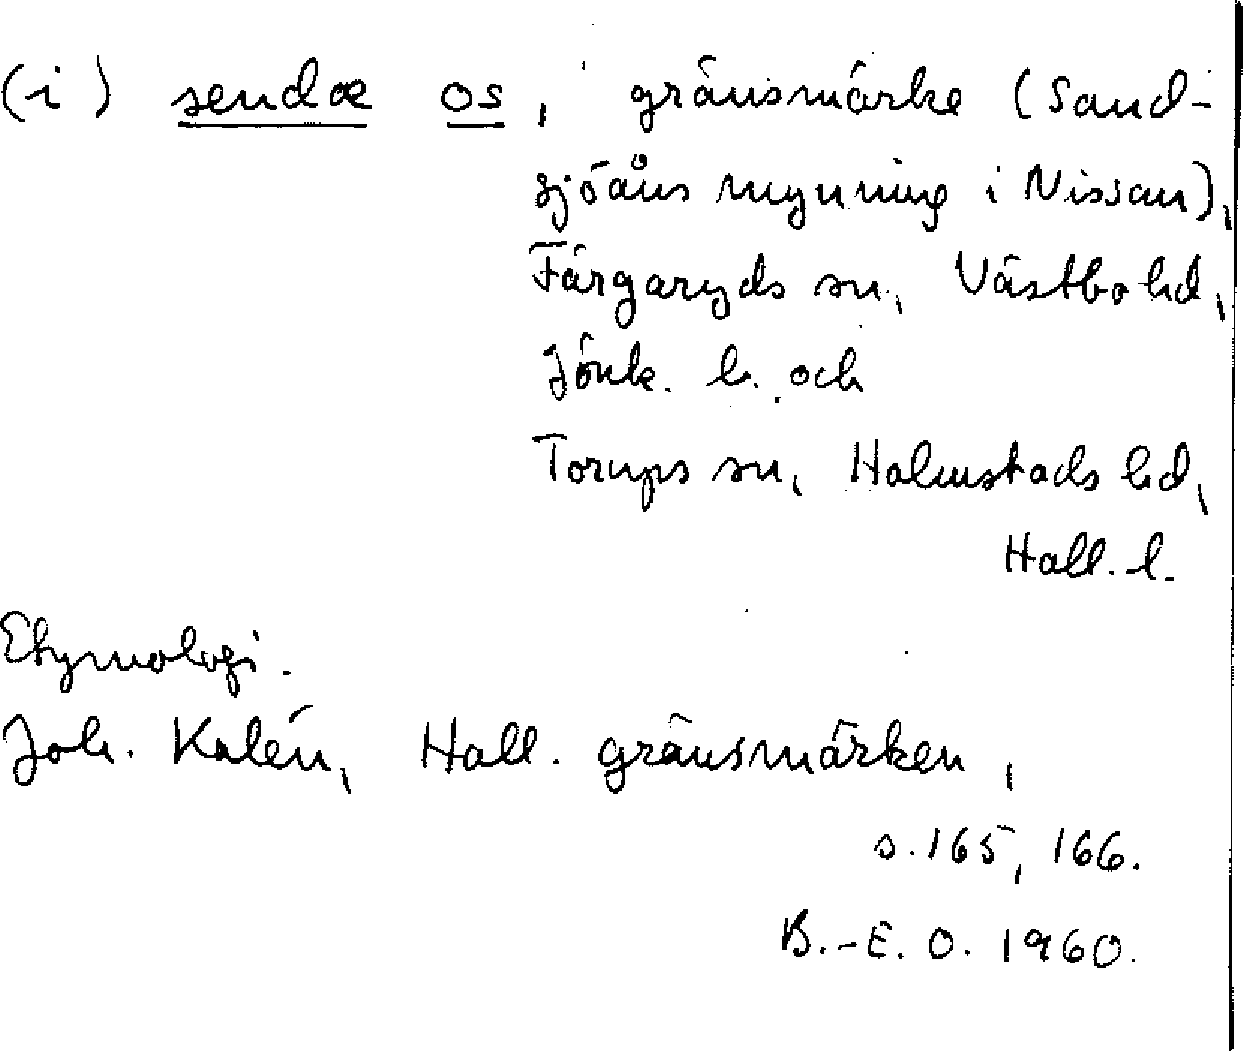 (i) sendæ os, gränsmärke (Sand-
sjöåns mynning i Nissan),
Färgaryds sn, Västbo hd,
Jönk. l. och
Torups sn, Halmstads hd,
Hall. l.
Etymologi.
Joh. Kalén, Hall. gränsmärken,
s. 165, 166.
B.-E. O. 1960.